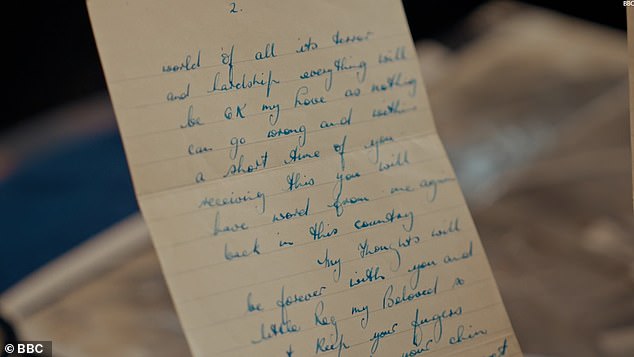 BBC
2.
world of all its terror
and hardship everything will
be OK my love as nothing
can go wrong and within
a short time of you
receiving this you will
have word from me again
back in this country
My thoughts will
be forever with you and
little Reg my Beloved so
keep your fingers
your chin
© BBC